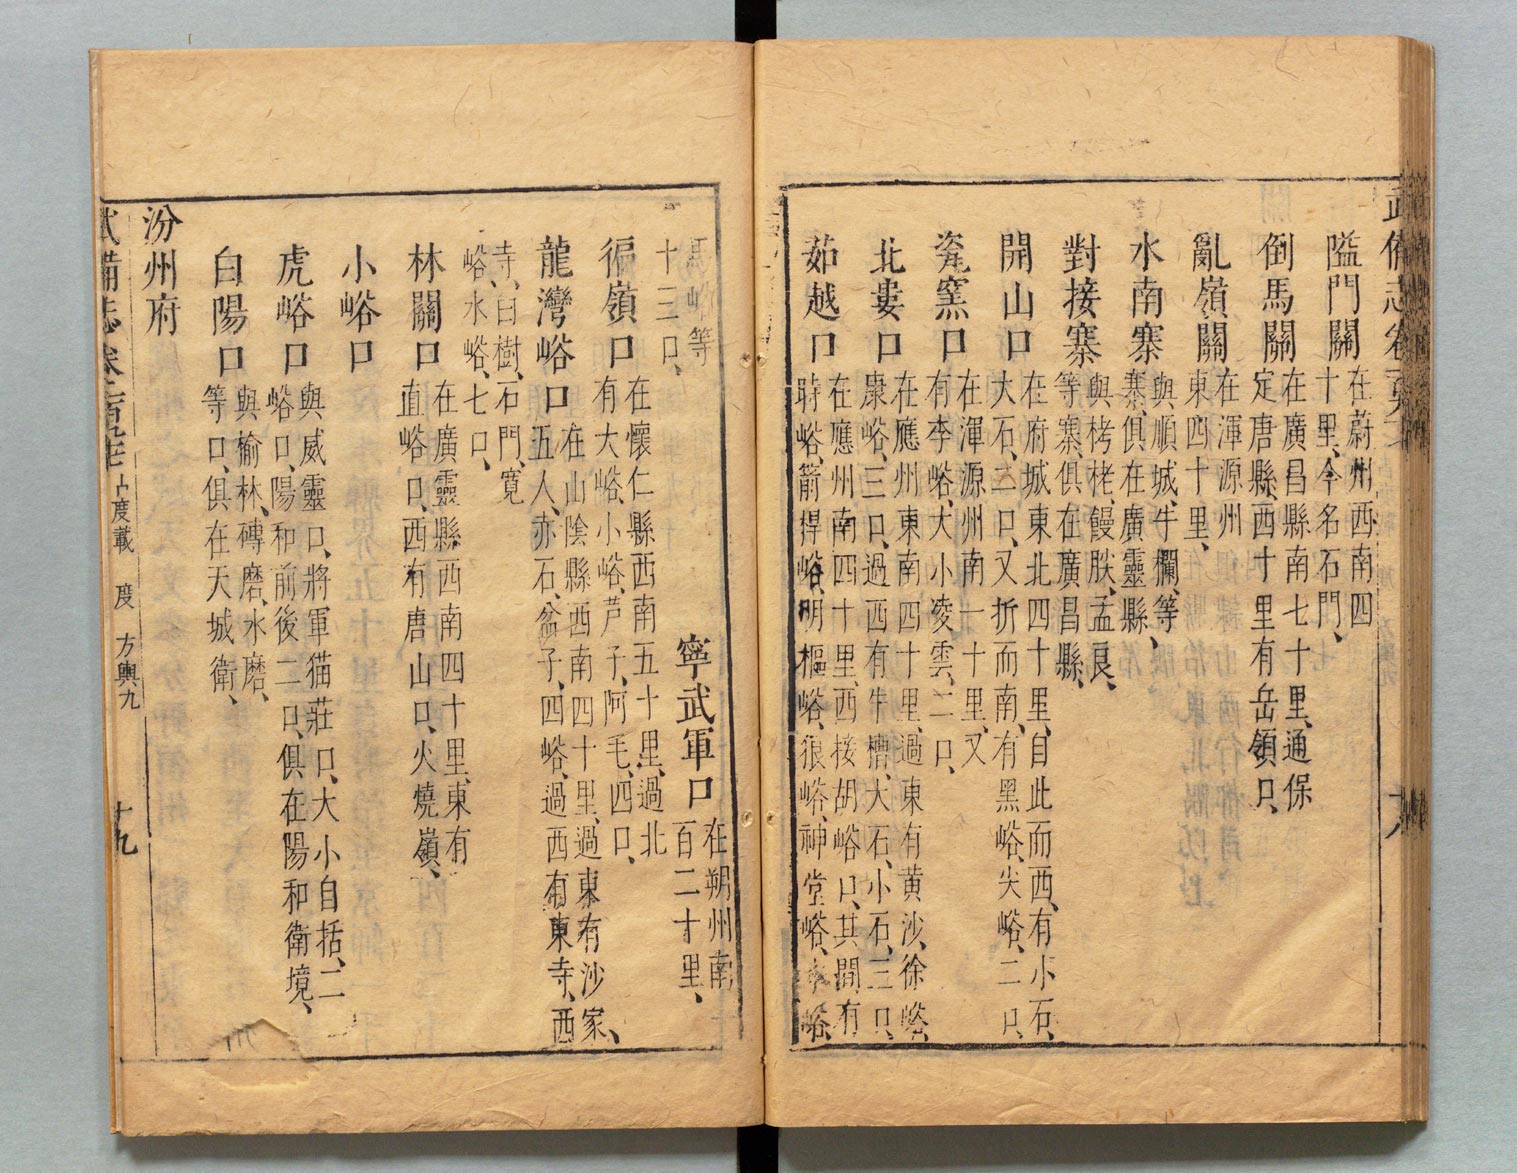 武備志卷
隘門關在蔚州西南四
十里今名石門、
倒馬關在廣昌縣南七十里、通保
定唐縣、西十里有岳嶺口、
亂嶺關在渾源州
東四十里、
水南寨與順城、牛欄、等、
寨、俱在廣靈縣、
對接寨與栲栳、饅肷、孟良、
等寨、俱在廣昌縣、
開山口在府城東北四十里、自此而西、有小石、
大石、二口、又折而南、有黑峪、尖峪、二口、
瓷窯口在渾源州南一十里、又
有李峪、大小凌雲、二口、
北婁口在應州東南四十里、過東有黄沙、徐峪、
康峪、三口、過西有牛槽、大石、小石、三口、
茹越口在應州南四十里、西接胡峪口、其間有
時峪、箭捍峪、明樞峪、狼峪、神堂峪、水峪、
馬峪等
十三口、
寧武軍口在朔州南
百二十里、
徧嶺口在懷仁縣西南五十里、過北
有大峪、小峪、芦子、阿毛、四口、
龍灣峪口在山陰縣西南四十里、過東有沙家、
五人、赤石、盆子、四峪、過西有東寺、西
寺、白樹、石門、寬
峪、水峪、七口、
林關口在廣靈縣西南四十里、東有
直峪口、西有唐山口、火燒嶺、
小峪口
虎峪口與威靈口、將軍猫莊口、大小自括、二
峪口、陽和前後二口、俱在陽和衛境、
白陽口與榆林、磚磨、水磨、
等口、俱在天城衛、
汾州府
武備志卷 占度載 度 方輿九 十九